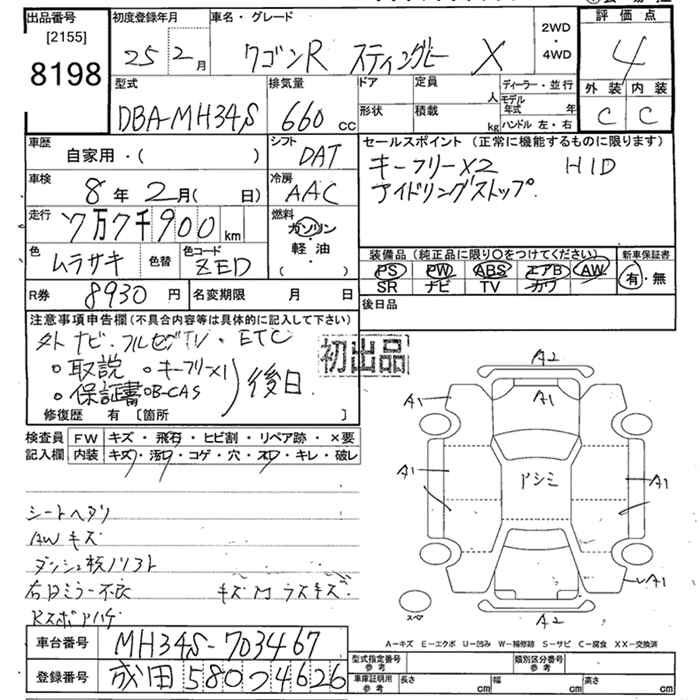 出品番号
[2155]
8198
初度登録年月
25年2月
車名・グレード
ワゴンR スティングレー X
2WD
・
4WD
評価点
4
外装 内装
C C
型式
DBA-MH34S
排気量
660 cc
ドア
定員
人
形状
積載
kg
ディーラー・並行
モデル年式 年
ハンドル 左・右
車歴
自家用・( )
シフト
DAT
セールスポイント (正常に機能するものに限ります)
キーフリーX2 HID
アイドリングストップ
車検
8年2月( 日)
冷房
AAC
走行
7万7千900km
燃料
ガソリン
軽・油
( )
色
ムラサキ
色替
色コード
ZED
装備品 (純正品に限り○をつけてください)
PS PW ABS エアB AW
SR ナビ TV カワ
新車保証書
有・無
R券 8930円
名変期限 月 日
後日品
注意事項申告欄 (不具合内容等は具体的に記入して下さい)
外ナビ・フルセグTV・ETC
○取説 ○キーフリーX1
○保証書 ○B-CAS
後日
修復歴 有 [箇所 ]
初出品
検査員
記入欄
FW キズ・飛石・ヒビ割・リペア跡・×要
内装 キズ・汚れ・コゲ・穴・スレ・キレ・破レ
シートヘタリ
AWキズ
ダッシュ板ノリフト
右ドミラー不衣
キズM ラスキズ
Rスポアハゲ
A2
A1
A1
A1
A1
アシミ
A1
A1
A2
スペア
A-キズ E-エクボ U-凹み W-補修跡 S-サビ C-腐食 XX-交換済
車台番号 MH34S-703467
登録番号 成田580つ4626
型式指定番号
参考
類別区分番号
参考
車庫証明用
参考
長さ cm
幅 cm
高さ cm